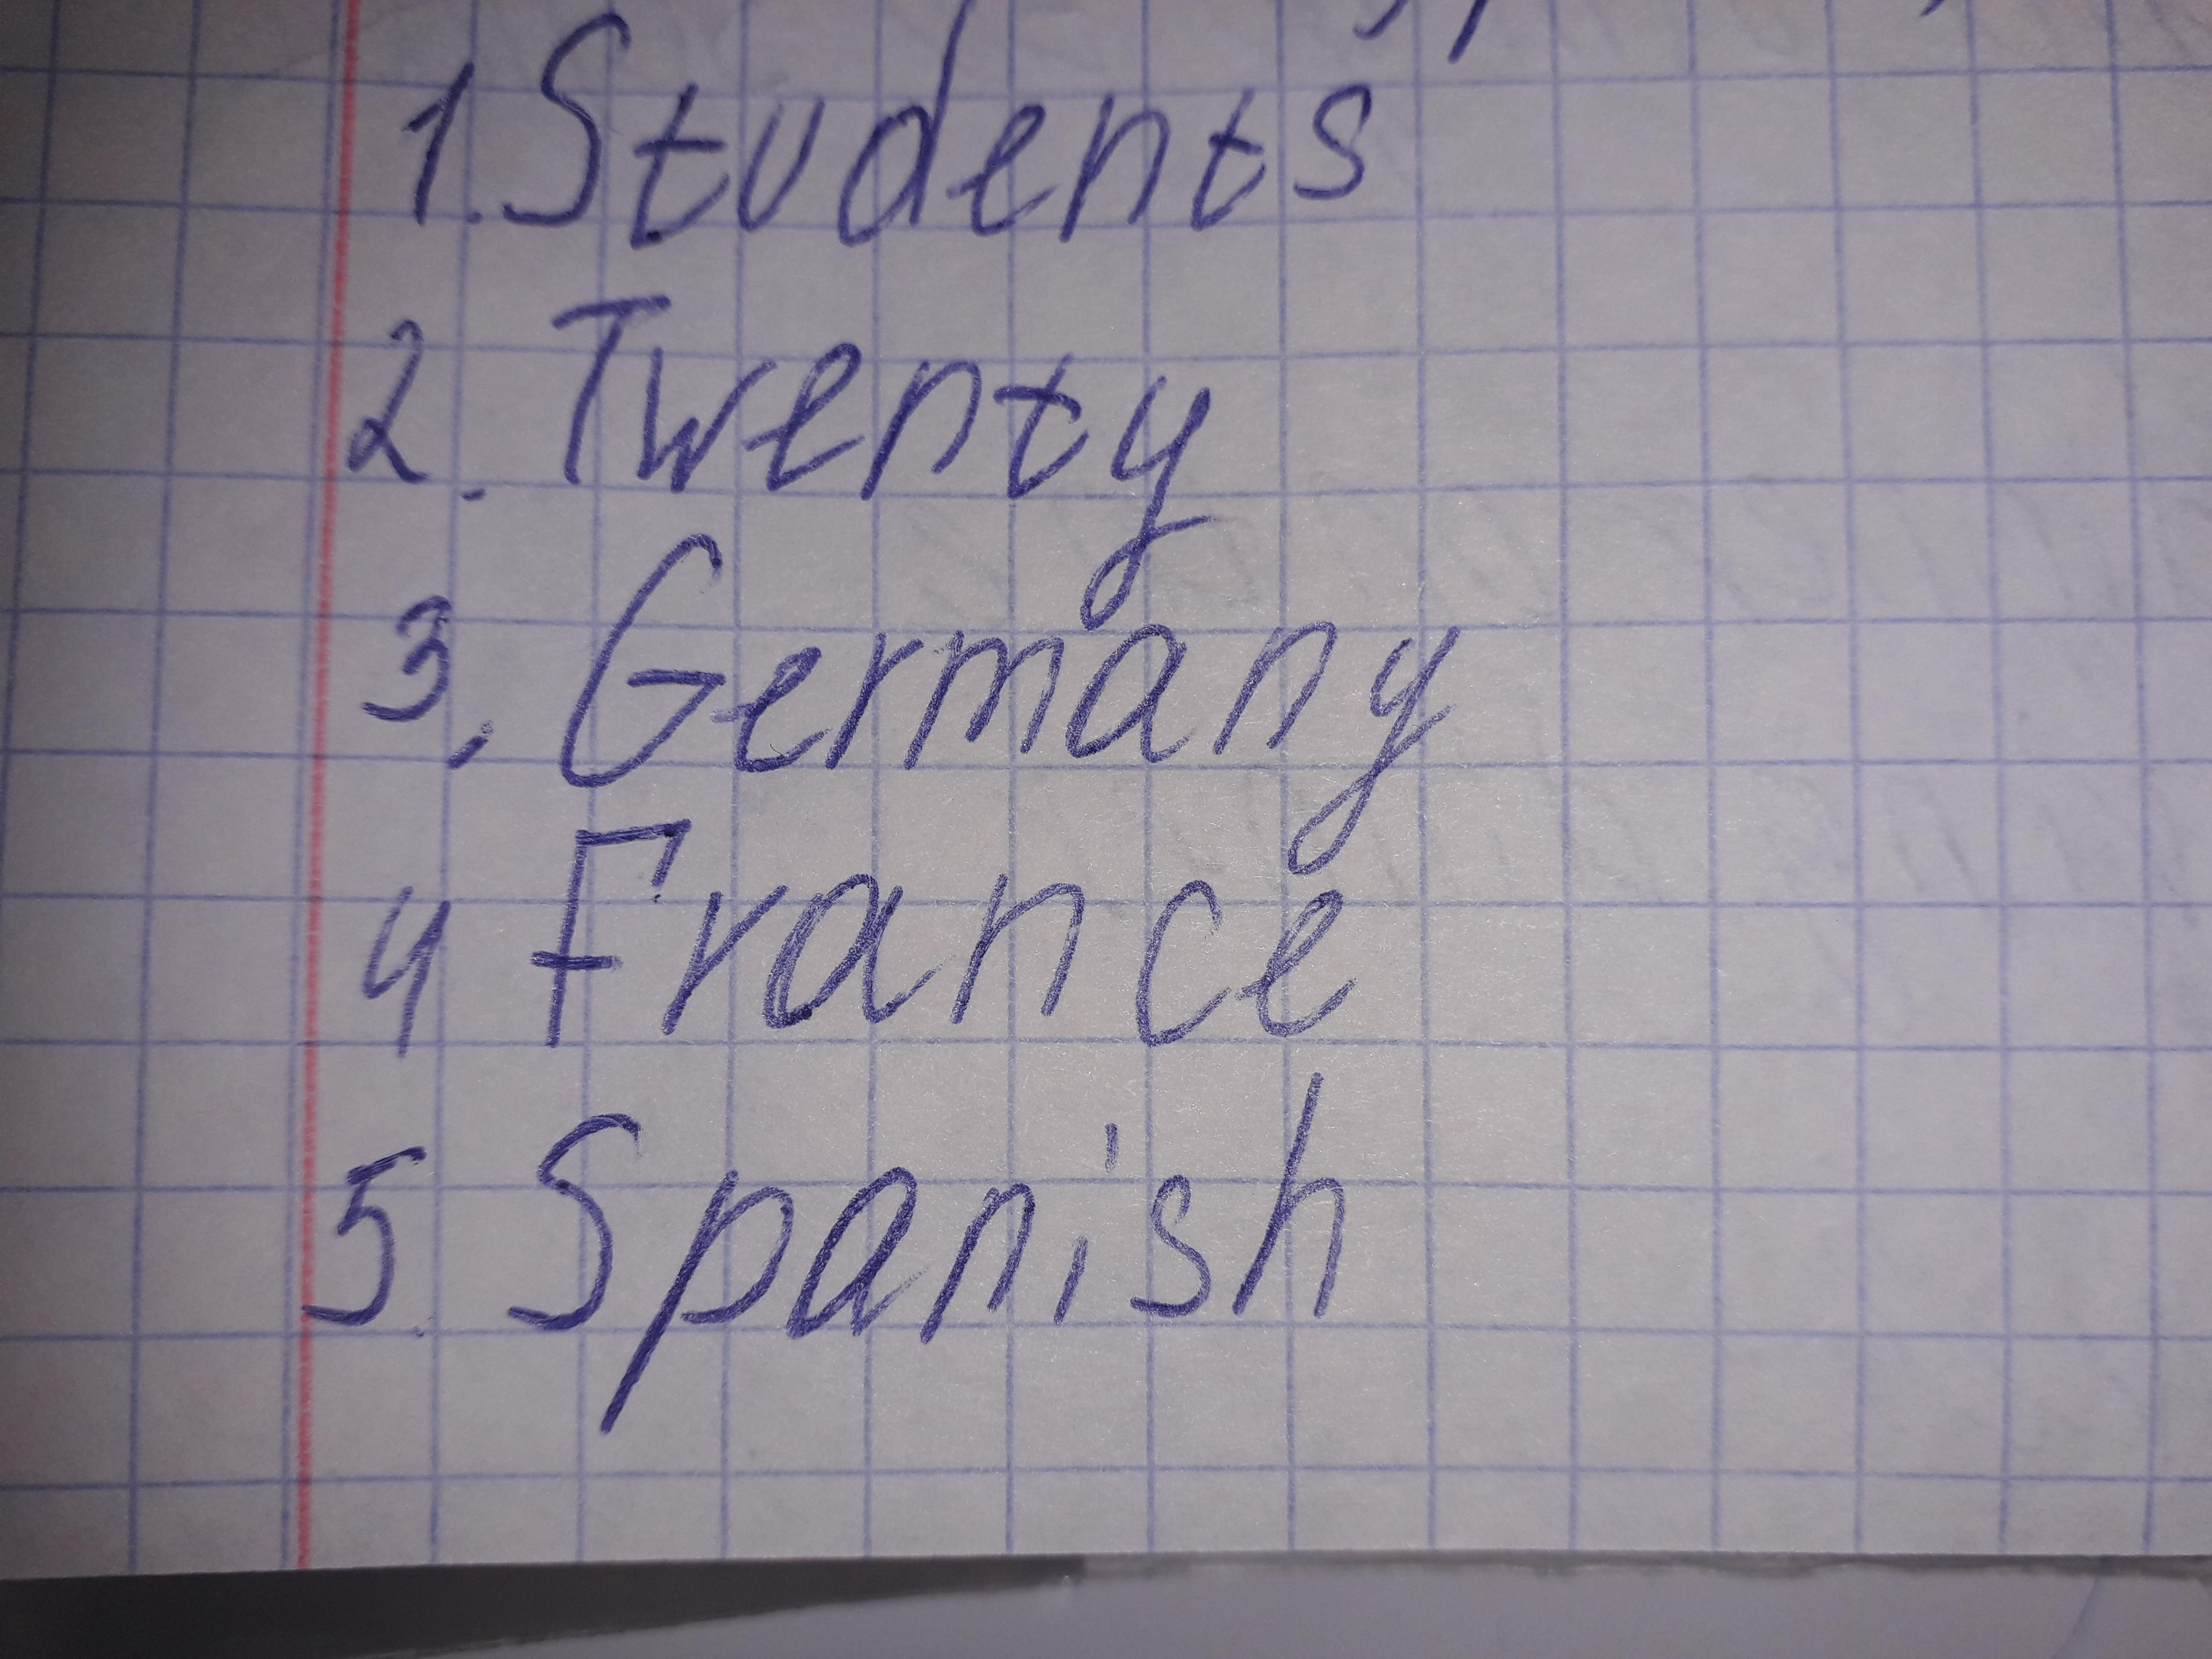 1. Students
2. Twenty
3. Germany
4 France
5. Spanish